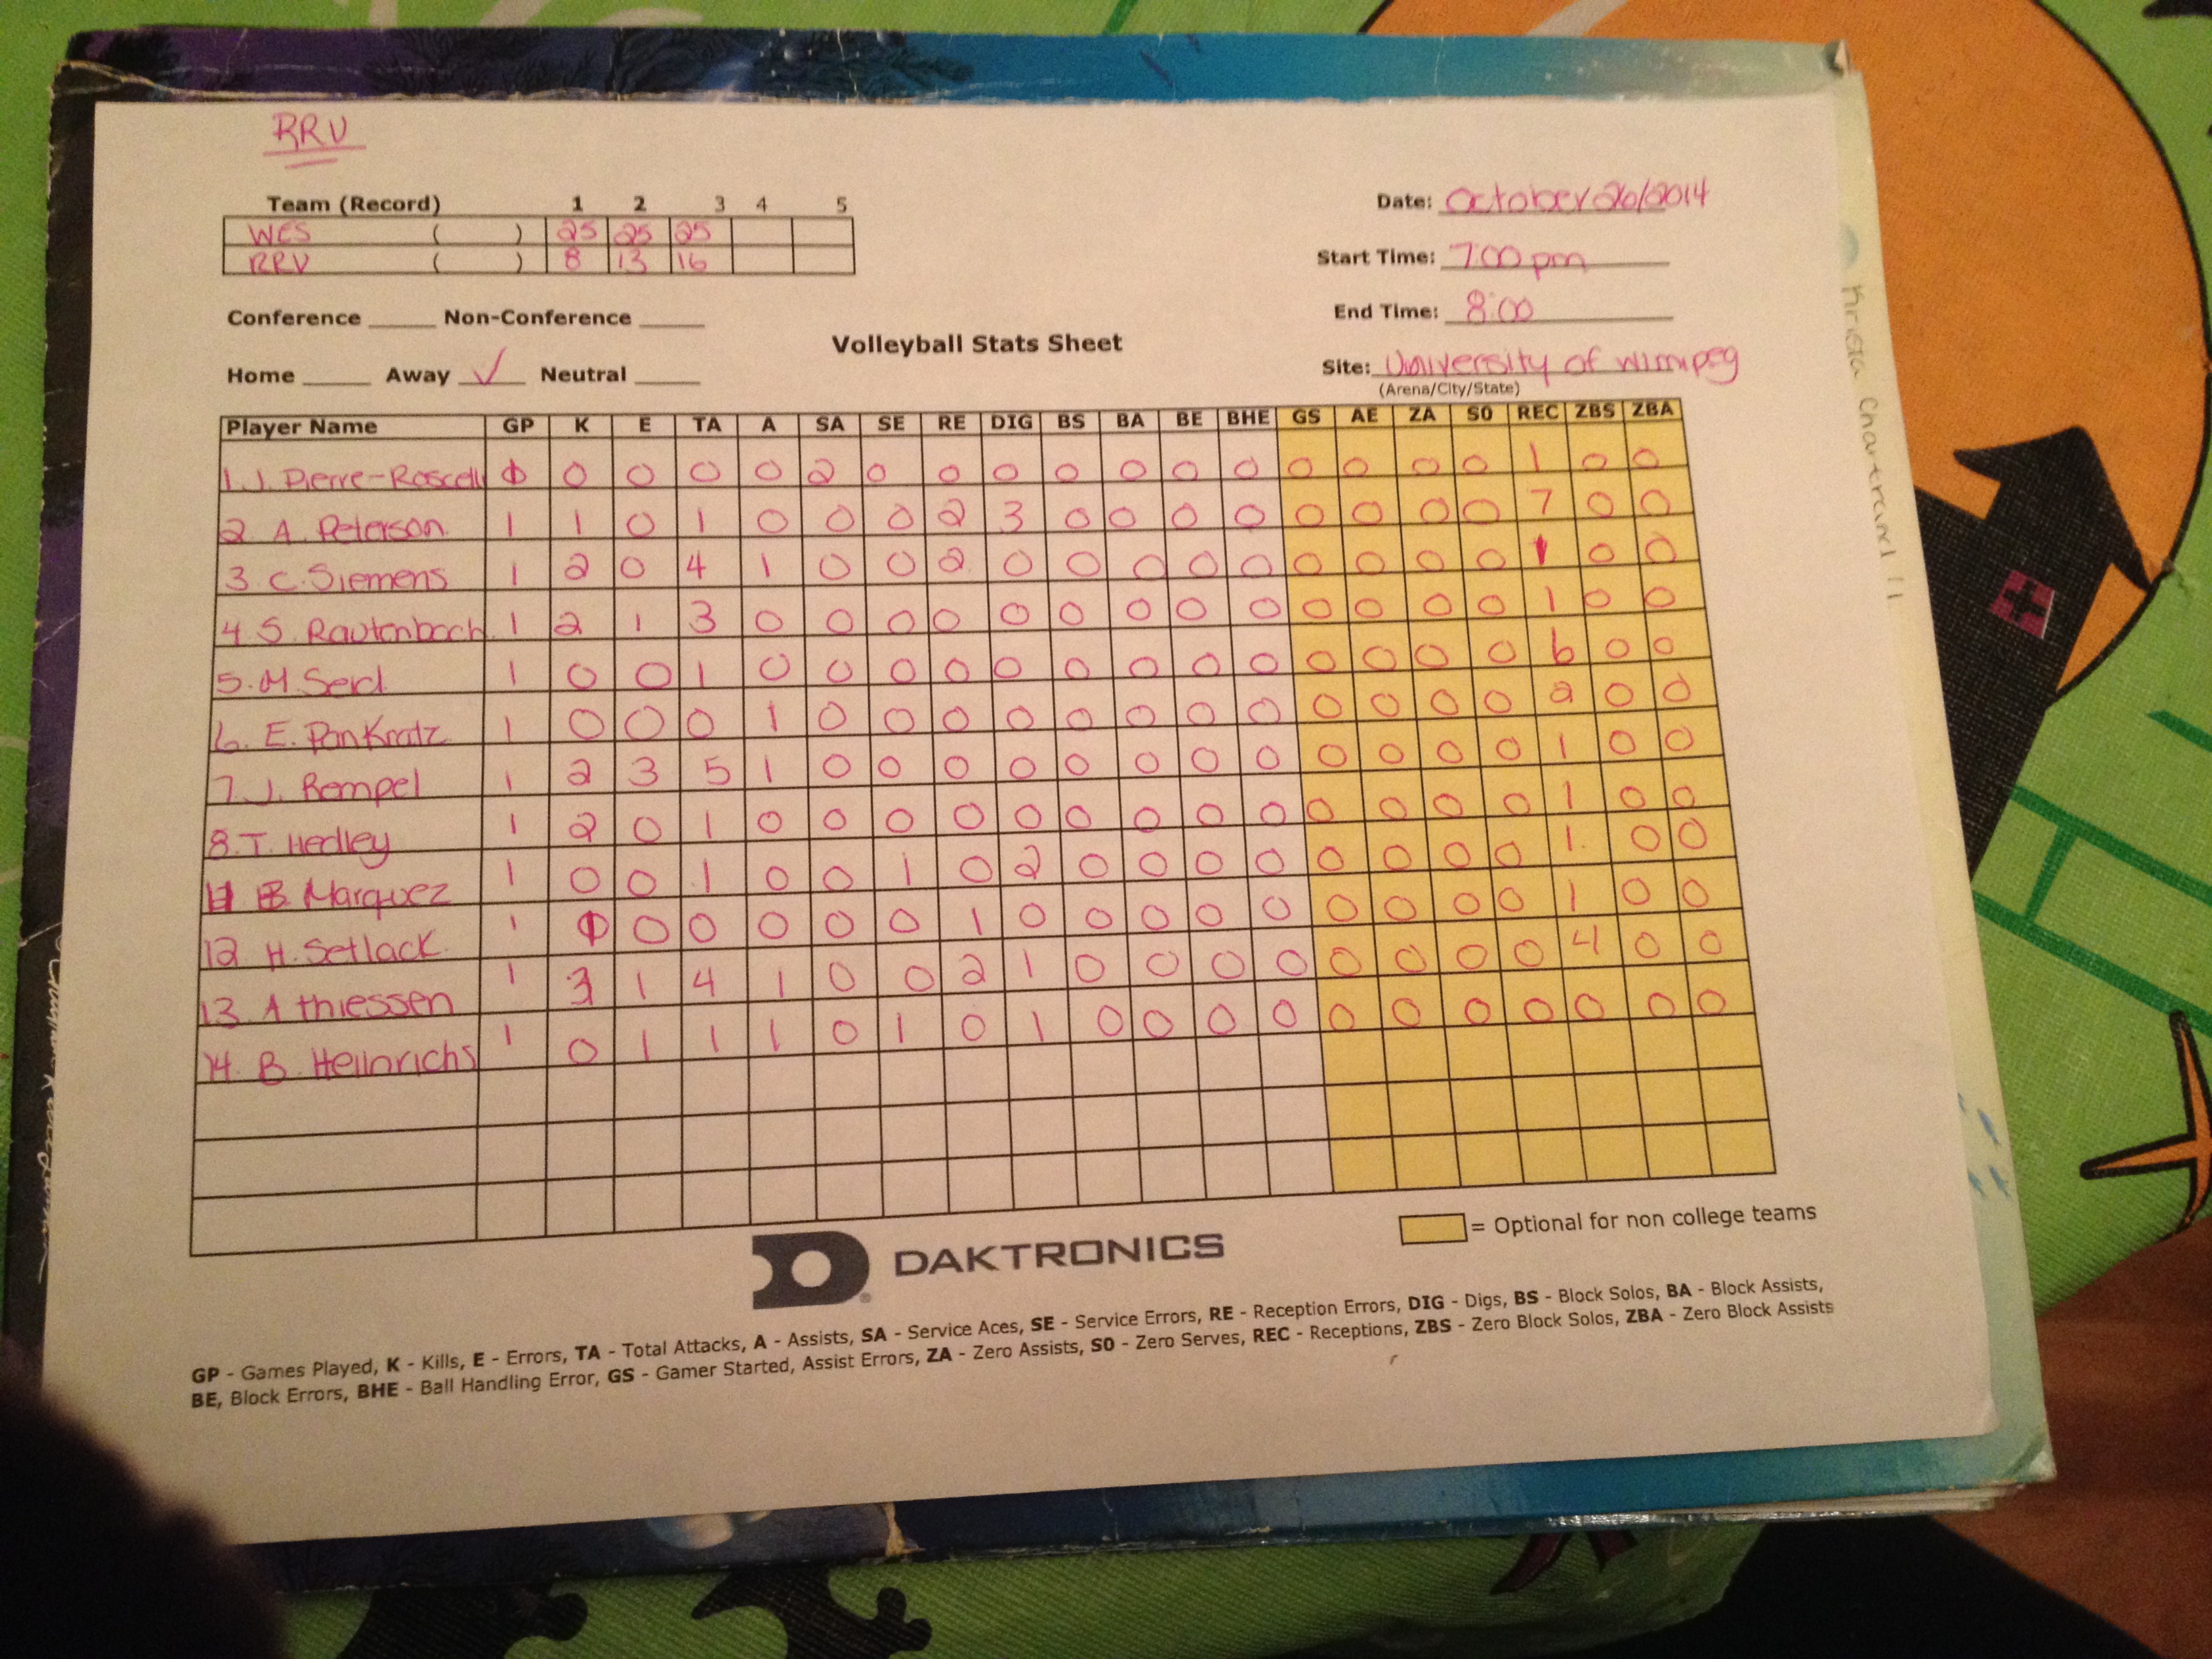 RRV
Team (Record) 1 2 3 4 5
WCS ( ) 25 25 25
RRV ( ) 8 13 16
Date: October 26/2014
Start Time: 7:00 pm
End Time: 8:00
Site: University of Winnipeg
(Arena/City/State)
Conference Non-Conference
Home Away ✓ Neutral
Volleyball Stats Sheet
Player Name GP K E TA A SA SE RE DIG BS BA BE BHE GS AE ZA S0 REC ZBS ZBA
1. J. Pierre-Roscelli 0 0 0 0 2 0 0 0 0 0 0 0 0 0 0 0 1 0 0
2 A. Peterson 1 1 0 1 0 0 0 2 3 0 0 0 0 0 0 0 0 7 0 0
3 C. Siemens 1 2 0 4 1 0 0 2 0 0 0 0 0 0 0 0 0 1 0 0
4 S. Rautenbach 1 2 1 3 0 0 0 0 0 0 0 0 0 0 0 0 0 1 0 0
5. M. Seid 1 0 0 1 0 0 0 0 0 0 0 0 0 0 0 0 0 6 0 0
6. E. PanKratz 1 0 0 0 1 0 0 0 0 0 0 0 0 0 0 0 0 2 0 0
7. J. Rempel 1 2 3 5 1 0 0 0 0 0 0 0 0 0 0 0 0 1 0 0
8. T. Hedley 1 2 0 1 0 0 0 0 0 0 0 0 0 0 0 0 0 1 0 0
11 B. Marquez 1 0 0 1 0 0 1 0 2 0 0 0 0 0 0 0 0 1 0 0
12 H. Setlack 1 0 0 0 0 0 1 0 0 0 0 0 0 0 0 0 1 0 0
13. A thiessen 1 3 1 4 1 0 0 2 1 0 0 0 0 0 0 0 0 4 0 0
14. B. Heinrichs 1 0 1 1 1 0 1 0 1 0 0 0 0 0 0 0 0 0 0 0
DAKTRONICS
= Optional for non college teams
GP - Games Played, K - Kills, E - Errors, TA - Total Attacks, A - Assists, SA - Service Aces, SE - Service Errors, RE - Reception Errors, DIG - Digs, BS - Block Solos, BA - Block Assists,
BE, Block Errors, BHE - Ball Handling Error, GS - Gamer Started, Assist Errors, ZA - Zero Assists, S0 - Zero Serves, REC - Receptions, ZBS - Zero Block Solos, ZBA - Zero Block Assists
Krista Chartrand 11